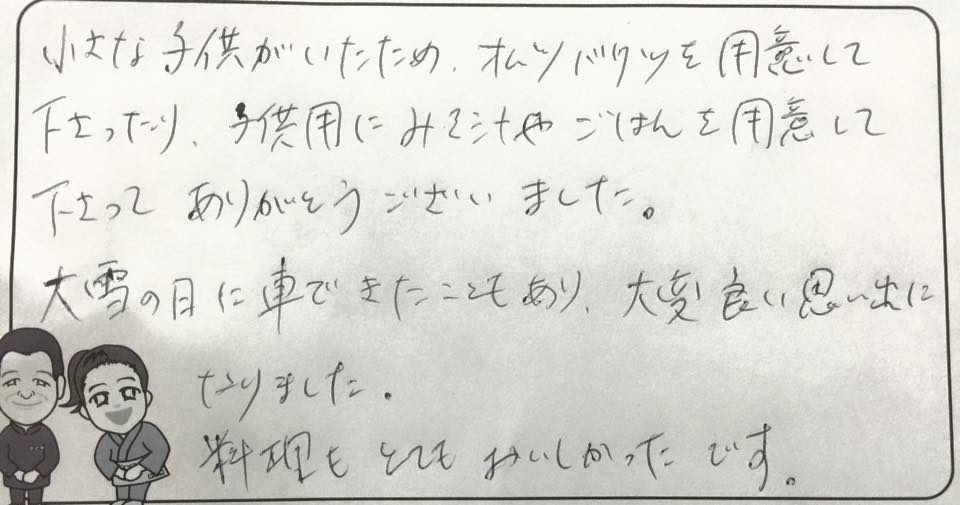 小さな子供がいたため、オムツバケツを用意して
下さったり、子供用にみそ汁や ごはんを用意して
下さって ありがとうございました。
大雪の日に車できたこともあり、大変良い思い出に
なりました。
料理も とても おいしかったです。